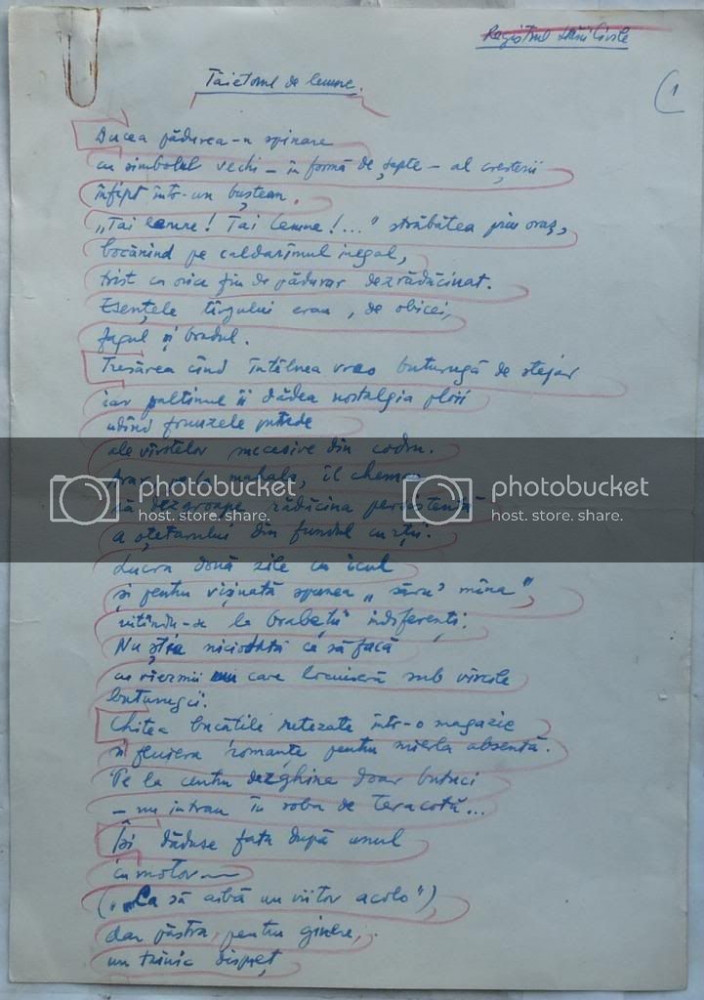 Registrul stării civile
1
Tăietorul de lemne.
Ducea pădurea-n spinare
cu simbolul vechi – în formă de șapte – al creșterii
înfipt într-un buștean.
„Tai lemne! Tai lemne!..." străbătea prin oraș,
bocănind pe caldarîmul inegal,
trist ca orice fiu de pădurar dezrădăcinat.
Esențele tîrgului erau, de obicei,
fagul și bradul.
Tresărea cînd întîlnea vreo buturugă de stejar
iar paltinul îi dădea nostalgia ploii
udînd frunzele putrede
ale vîrstelor succesive din codru.
mahala, îl chemau
să dezgroape rădăcina persistentă
a oțetarului din fundul curții.
Lucra două zile cu icul
și pentru vișinată spunea „săru' mîna",
uitîndu-se la brabeții indiferenți.
Nu știa niciodată ce să facă
cu viermii care locuiseră sub vîrstele
buturugii.
Chitea bucățile retezate într-o magazie
și fluiera romanțe pentru mierla absentă.
Pe la centru dezghina doar butuci
– nu intrau în soba de teracotă...
Își dăduse fata după unul
cu motor
(„Ca să aibă un viitor acolo"),
dar păstra, pentru ginere,
un tainic dispreț
photobucket
host. store. share.
photobucket
host. store. share.